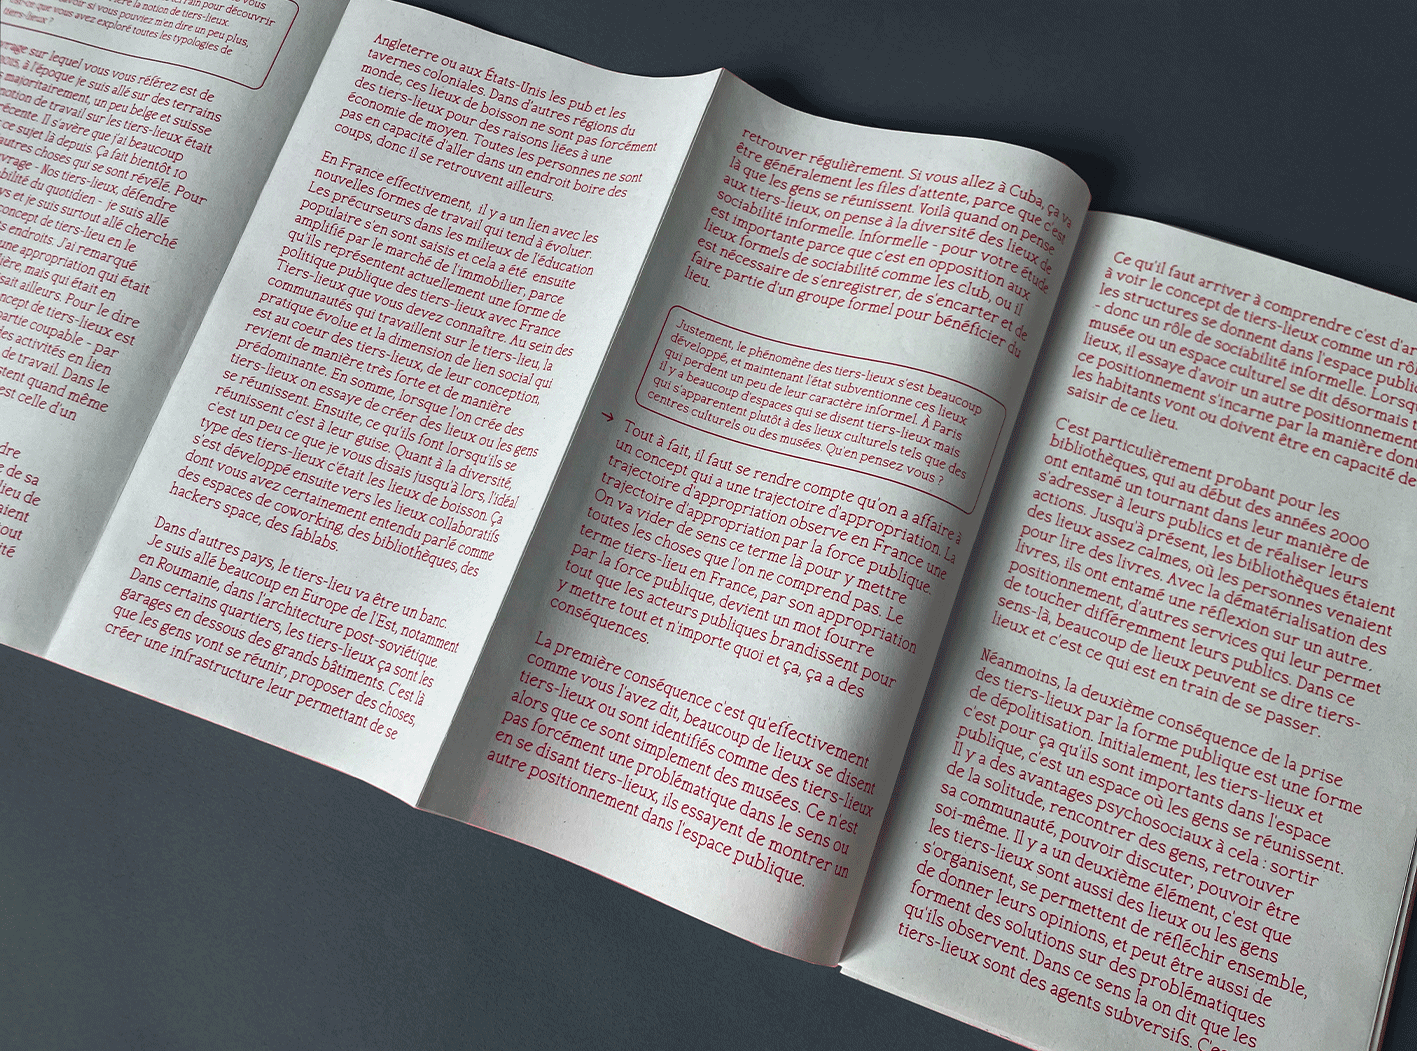 rain pour découvrir
la notion de tiers-lieux.
savoir si vous pouviez m'en dire un peu plus,
est-ce que vous avez exploré toutes les typologies de
tiers-lieux ?
sur lequel vous vous référez est de
à l'époque je suis allé sur des terrains
majoritairement, un peu belge et suisse
notion de travail sur les tiers-lieux était
Il s'avère que j'ai beaucoup
ce sujet là depuis. Ça fait bientôt 10
autres choses qui se sont révélé. Pour
Nos tiers-lieux, défendre
du quotidien - je suis allé
et je suis surtout allé cherché
concept de tiers-lieu en le
endroits. J'ai remarqué
une appropriation qui était
mais qui était en
ailleurs. Pour le dire
concept de tiers-lieux est
partie coupable - par
activités en lien
de travail. Dans le
quand même
est celle d'un
de sa
lieu de
tout
Angleterre ou aux États-Unis les pub et les
tavernes coloniales. Dans d'autres régions du
monde, ces lieux de boisson ne sont pas forcément
des tiers-lieux pour des raisons liées à une
économie de moyen. Toutes les personnes ne sont
pas en capacité d'aller dans un endroit boire des
coups, donc il se retrouvent ailleurs.
En France effectivement, il y a un lien avec les
nouvelles formes de travail qui tend à évoluer.
Les précurseurs dans les milieux de l'éducation
populaire s'en sont saisie et cela a été ensuite
amplifié par le marché de l'immobilier, parce
qu'ils représentent actuellement une forme de
politique publique des tiers-lieux avec France
Tiers-lieux que vous devez connaître. Au sein des
communautés qui travaillent sur le tiers-lieu, la
pratique évolue et la dimension de lien social qui
est au coeur des tiers-lieux, de leur conception,
revient de manière très forte et de manière
prédominante. En somme, lorsque l'on crée des
tiers-lieux on essaye de créer des lieux ou les gens
se réunissent. Ensuite, ce qu'ils font lorsqu'ils se
réunissent c'est à leur guise. Quant à la diversité,
c'est un peu ce que je vous disais jusqu'à lors, l'idéal
type des tiers-lieux c'était les lieux de boisson. Ça
s'est développé ensuite vers les lieux collaboratifs
dont vous avez certainement entendu parlé comme
des espaces de coworking, des bibliothèques, des
hackers space, des fablabs.
Dans d'autres pays, le tiers-lieu va être un banc.
Je suis allé beaucoup en Europe de l'Est, notamment
en Roumanie, dans l'architecture post-soviétique.
Dans certains quartiers, les tiers-lieux ça sont les
garages en dessous des grands bâtiments. C'est là
que les gens vont se réunir, proposer des choses,
créer une infrastructure leur permettant de se
retrouver régulièrement. Si vous allez à Cuba, ça va
être généralement les files d'attente, parce que c'est
là que les gens se réunissent. Voilà quand on pense
aux tiers-lieux, on pense à la diversité des lieux de
sociabilité informelle. Informelle - pour votre étude
est importante parce que c'est en opposition aux
lieux formels de sociabilité comme les club, ou il
est nécessaire de s'enregistrer, de s'encarter et de
faire partie d'un groupe formel pour bénéficier du
lieu.
Justement, le phénomène des tiers-lieux s'est beaucoup
développé, et maintenant l'état subventionne ces lieux
qui perdent un peu de leur caractère informel. À Paris
il y a beaucoup d'espaces qui se disent tiers-lieux mais
qui s'apparentent plutôt à des lieux culturels tels que des
centres culturels ou des musées. Qu'en pensez vous ?
→ Tout à fait, il faut se rendre compte qu'on a affaire à
un concept qui a une trajectoire d'appropriation. La
trajectoire d'appropriation observe en France une
trajectoire d'appropriation par la force publique.
On va vider de sens ce terme là pour y mettre
toutes les choses que l'on ne comprend pas. Le
terme tiers-lieu en France, par son appropriation
par la force publique, devient un mot fourre
tout que les acteurs publiques brandissent pour
y mettre tout et n'importe quoi et ça, ça a des
conséquences.
La première conséquence c'est qu'effectivement
comme vous l'avez dit, beaucoup de lieux se disent
tiers-lieux ou sont identifiés comme des tiers-lieux
alors que ce sont simplement des musées. Ce n'est
pas forcément une problématique dans le sens ou
en se disant tiers-lieux, ils essayent de montrer un
autre positionnement dans l'espace publique.
Ce qu'il faut arriver à comprendre c'est d'ar
à voir le concept de tiers-lieux comme un rôl
les structures se donnent dans l'espace public
donc un rôle de sociabilité informelle. Lorsqu
musée ou un espace culturel se dit désormais t
lieux, il essaye d'avoir un autre positionnement
ce positionnement s'incarne par la manière dont
les habitants vont ou doivent être en capacité de
saisir de ce lieu.
C'est particulièrement probant pour les
bibliothèques, qui au début des années 2000
ont entamé un tournant dans leur manière de
s'adresser à leurs publics et de réaliser leurs
actions. Jusqu'à présent, les bibliothèques étaient
des lieux assez calmes, où les personnes venaient
pour lire des livres. Avec la dématérialisation des
livres, ils ont entamé une réflexion sur un autre
positionnement, d'autres services qui leur permet
de toucher différemment leurs publics. Dans ce
sens-là, beaucoup de lieux peuvent se dire tiers-
lieux et c'est ce qui est en train de se passer.
Néanmoins, la deuxième conséquence de la prise
des tiers-lieux par la forme publique est une forme
de dépolitisation. Initialement, les tiers-lieux et
c'est pour ça qu'ils sont importants dans l'espace
publique, c'est un espace où les gens se réunissent.
Il y a des avantages psychosociaux à cela : sortir
de la solitude, rencontrer des gens, retrouver
sa communauté, pouvoir discuter, pouvoir être
soi-même. Il y a un deuxième élément, c'est que
les tiers-lieux sont aussi des lieux ou les gens
s'organisent, se permettent de réfléchir ensemble,
de donner leurs opinions, et peut être aussi de
forment des solutions sur des problématiques
qu'ils observent. Dans ce sens la on dit que les
tiers-lieux sont des agents subversifs. C'es